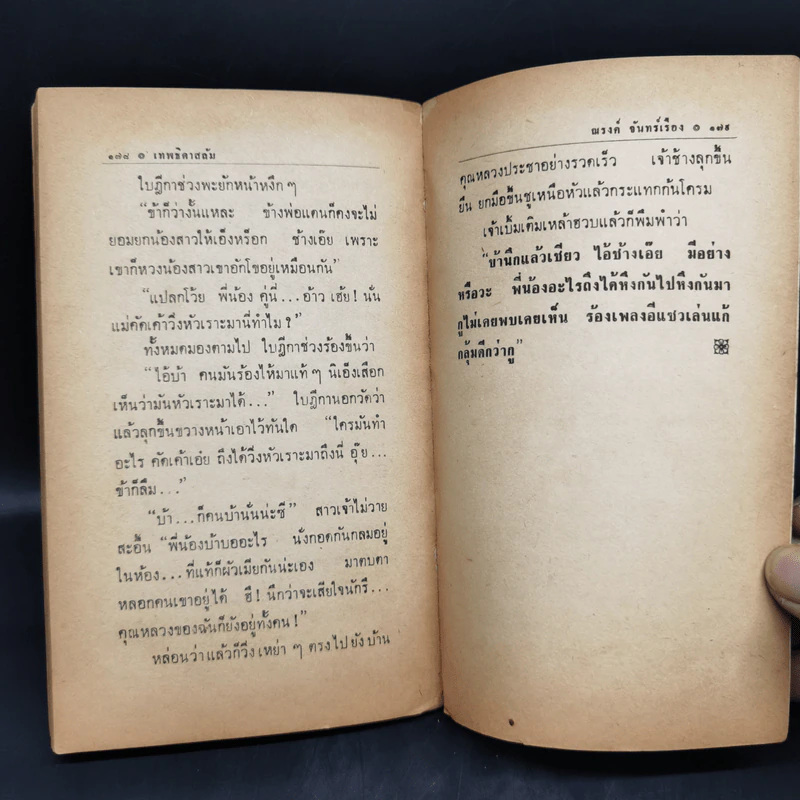 ๑๗๘ ๏ เทพธิดาสลัม
ใบฎีกาช่วงพะยักหน้าหงึกๆ
“ข้าก็ว่างั้นแหละ ข้างพ่อแดนก็คงจะไม่
ยอมยกน้องสาวให้เอ็งหร็อก ช้างเอ๊ย เพราะ
เขาก็หวงน้องสาวเขาอักโขอยู่เหมือนกัน”
“แปลกโว้ย พี่น้อง คู่นี่...อ้าว เฮ้ย! นั่น
แม่คัดเค้าวิ่งหัวเราะมานี่ทำไม?”
ทั้งหมดมองตามไป ใบฎีกาช่วงร้องขึ้นว่า
“ไอ้บ้า คนมันร้องไห้มาแท้ๆ นี่เอ็งเสือก
เห็นว่ามันหัวเราะมาได้...” ใบฎีกานอกวัดว่า
แล้วลุกขึ้นขวางหน้าเอาไว้ทันใด “ใครมันทำ
อะไร คัดเค้าเอ๋ย ถึงได้วิ่งหัวเราะมาถึงนี่ อุ๊ย...
ข้าก็ลืม...”
“บ้า...ก็คนบ้านนั่นน่ะซี” สาวเจ้าไม่วาย
สะอื้น “พี่น้องบ้าบออะไร นั่งกอดกันกลมอยู่
ในห้อง...ที่แท้ก็ผัวเมียกันน่ะเอง มาตบตา
หลอกคนเขาอยู่ได้ ฮี! นึกว่าจะเสียใจนักรึ...
คุณหลวงของฉันก็ยังอยู่ทั้งคน!”
หล่อนว่าแล้วก็วิ่ง เหย่า ๆ ตรงไปยังบ้าน
ณรงค์ จันทร์เรือง ๏ ๑๗๙
คุณหลวงประชาอย่างรวดเร็ว เจ้าช้างลุกขึ้น
ยืน ยกมือขึ้นชูเหนือหัวแล้วกระแทกก้นโครม
เจ้าเบิ้มเติมเหล้าฮวบแล้วก็พึมพำว่า
“บ๊านึกแล้วเชียว ไอ้ช้างเอ๊ย มีอย่าง
หรือวะ พี่น้องอะไรถึงได้หึงกันไปหึงกันมา
กูไม่เคยพบเคยเห็น ร้องเพลงอีแซวเล่นแก้
กลุ้มดีกว่ากู”